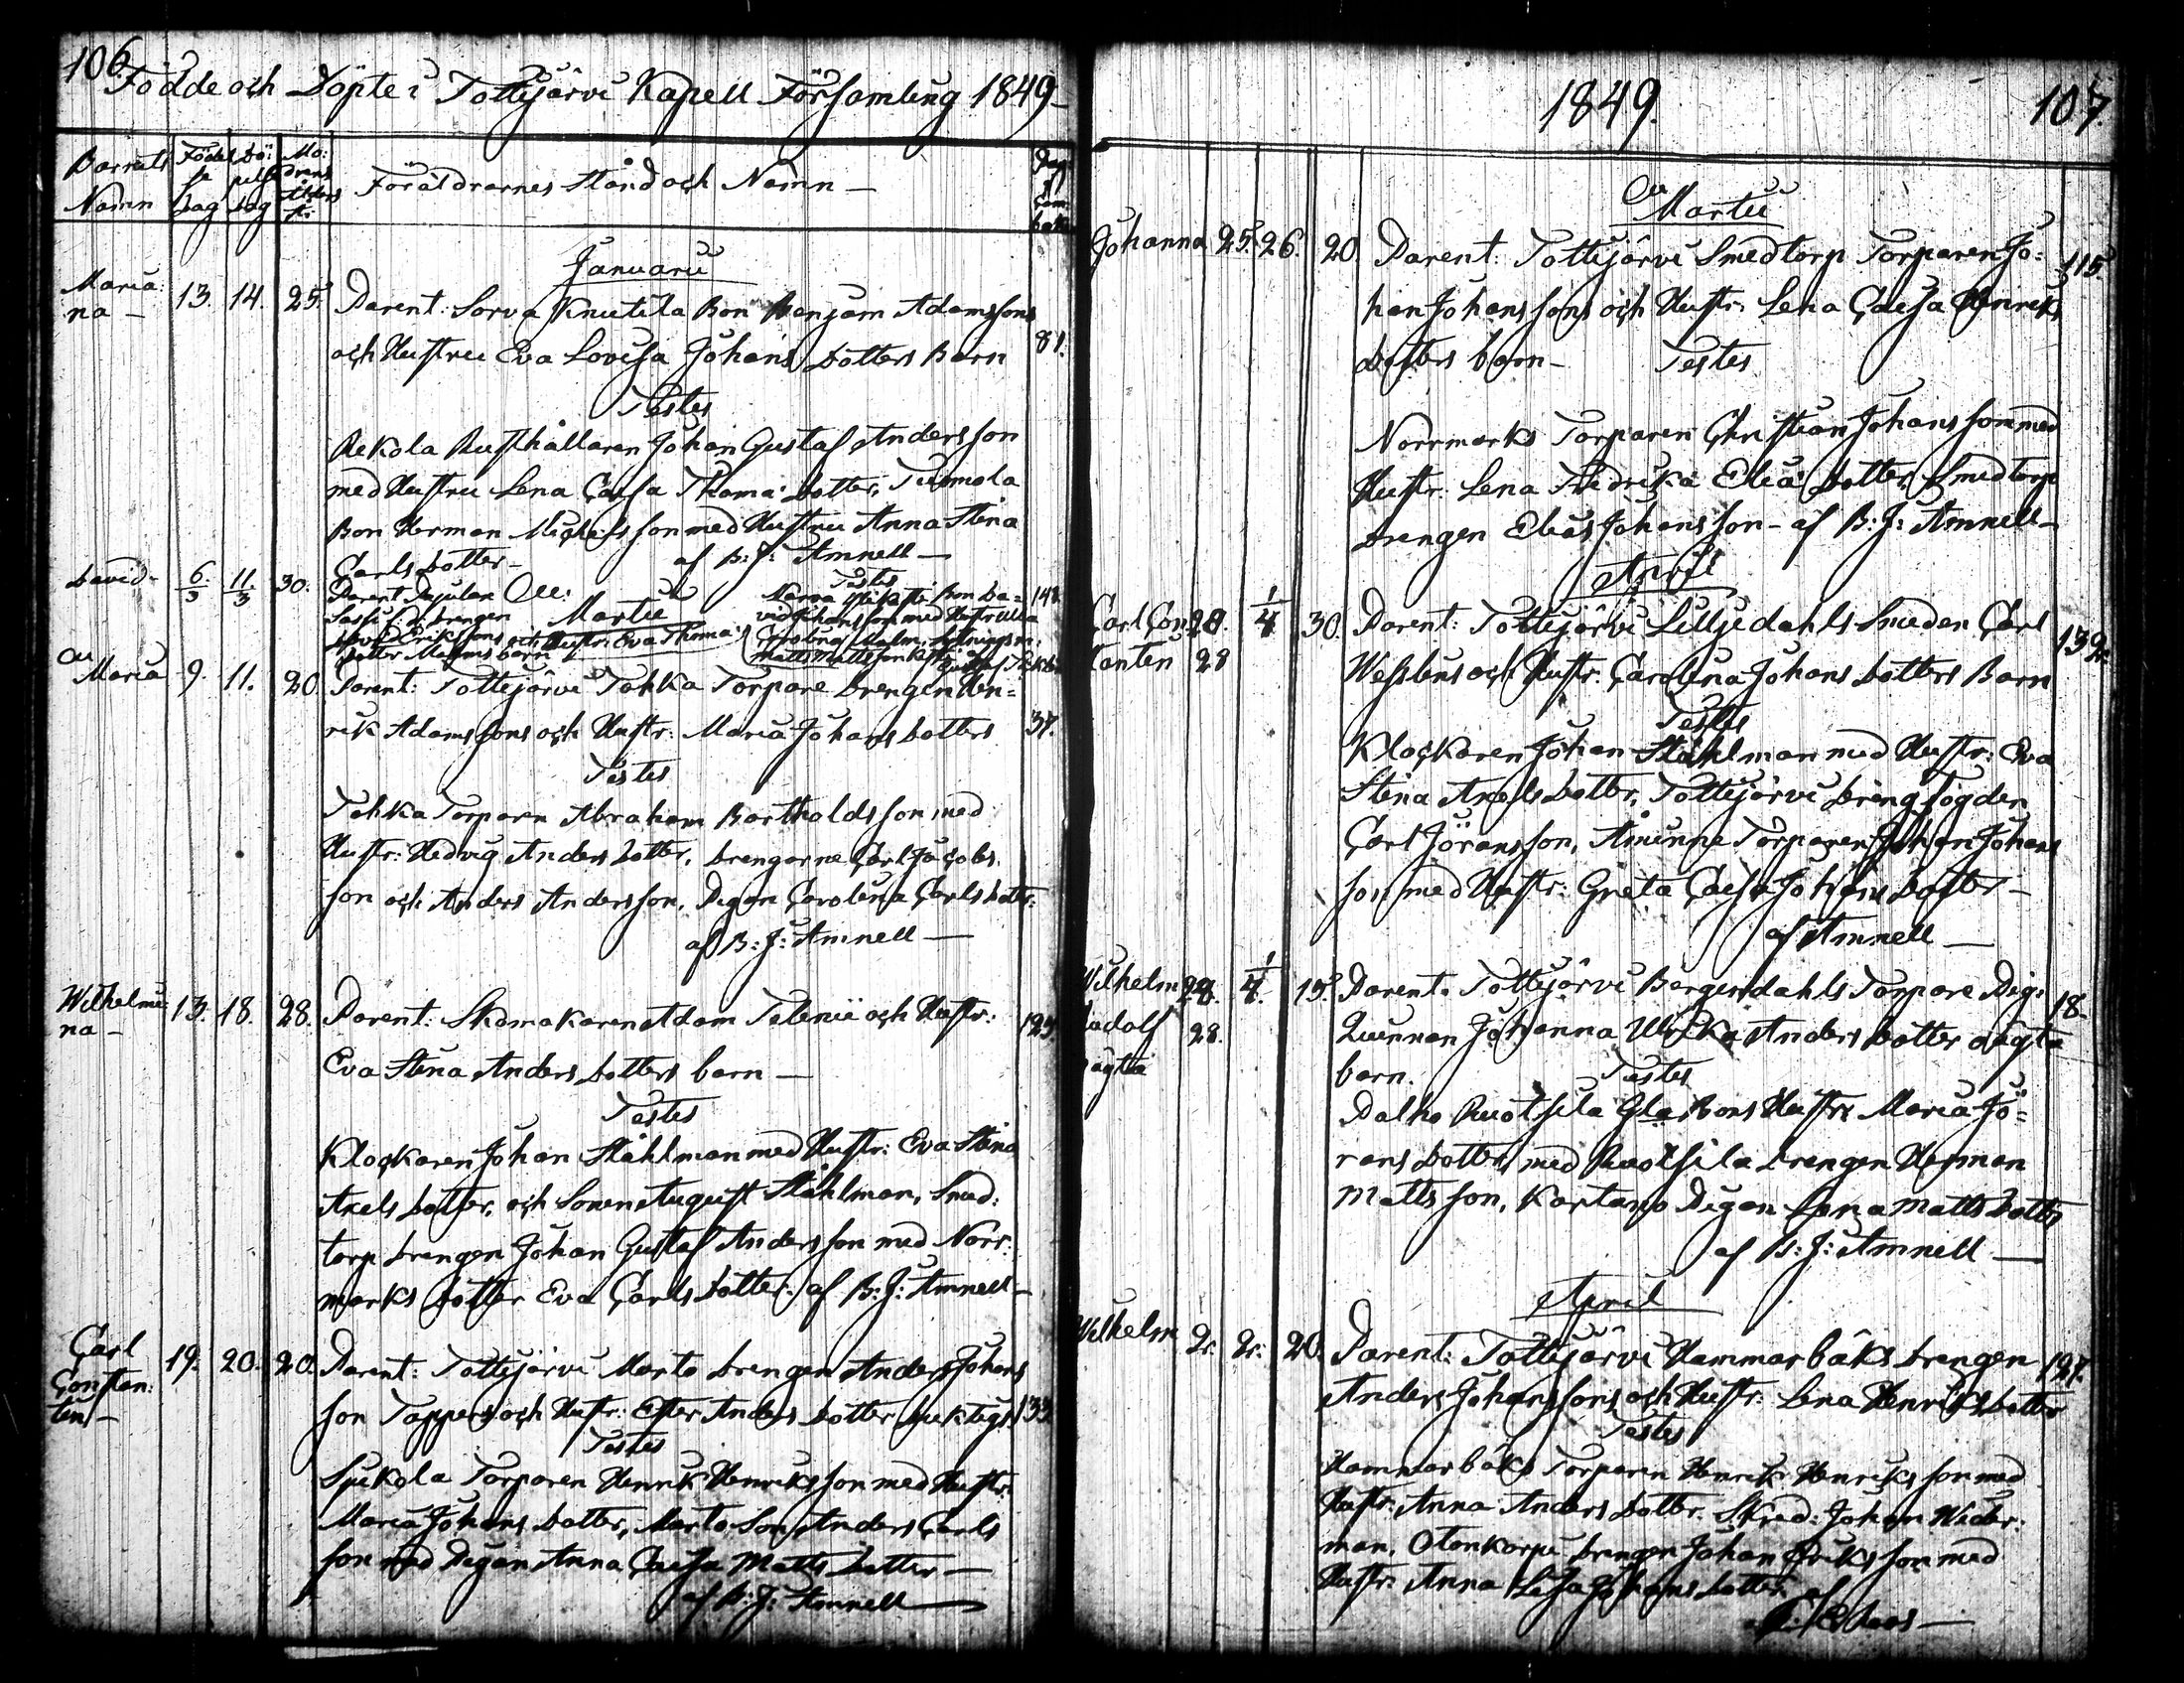 106.
Födde och Döpte i Tottijärvi Kapell Församling 1849
Barnets Namn
Födel se Dag
Dö: pelse Dag
Mo: drens Ålders år
Föräldrarnes Stånd och Namn
Januarii
Maria na 13. 14. 25. Parent: Sorva Knutila Bon Benjam Adamssons
och Hustru Eva Lovisa Johans Dotters Barn 81.
Testes
Rekola Rusthållaren Johan Gustaf Andersson
med Hustru Lena Cajsa Thoma Dotter, Tuomola
Bon Herman Michelsson med Hustru Anna Stina
Carls Dotter af B: J: Amnell
David 6/3 11/3 30. Parent
Testes
148.
Drengen Martii
Eriksons och Hustr: Eva Thoma
Dotter barn
Matts Mattsson
Maria 9. 11. 20 Parent: Tottijärvi Tohka Torpare Drengen Hen=
rik Adamssons och Hustr: Maria Johans Dotters 37.
Testes
Tohka Torparen Abraham Bartholdsson med
Hustr: Hedvig Anders Dotter, Drengarne Carl Jacobs
son och Anders Andersson, Pigan Carolina Carls Dotter.
af B: J: Amnell
Wilhelmi: na 13. 18. 28. Parent: Skomakaren Adam och Hustr:
Eva Stina Anders Dotters barn
Testes
Klockaren Johan Ståhlman med Hustr: Eva Stina
Axels Dotter, och Sonen August Ståhlman, Smed:
torp Drengen Johan Gustaf Andersson med Norr:
marks Dotter Eva Carls Dotter. af B: J: Amnell
Carl Constan: tin 19. 20. 20. Parent: Tottijärvi Marto Drengen Anders Johans
son Tappers och Hustr: Ester Anders Dotter 133.
Testes
Spikola Torparen Henrik Henriksson med Hustr:
Maria Johans Dotter, Marto Son Anders Carls
son med Pigan Anna Cajsa Matts Dotter
af B: J: Amnell
1849.
107.
Martii
Johanna 25. 26. 20. Parent: Tottijärvi Smedtorp Torparen Jo: 115.
han Johanssons och Hustr: Lena Cajsa Henriks
Dotters barn Testes
Norrmarks Torparen Christian Johansson med
Hustr: Lena Fredrika Elia Dotter, Smedtorp
Drengen Elias Johansson af B: J: Amnell
April
Carl Con 28. 1/4 30. Parent: Tottijärvi Lilljedahls Smeden Carl 139.
28 och Hustr: Carolina Johans Dotters Barn
Testes
Klockaren Johan Ståhlman med Hustr: Eva
Stina Axels Dotter, Tottijärvi Drengfogden
Carl Jöransson, Åminne Torparen Johan Johans
son med Hustr: Greta Cajsa Johans Dotter
af Amnell
Wilhelm 28. 1/4. 15. Parent. Tottijärvi Bergendahls Torpare Pig: 18.
28. Quinnan Johanna Ulrika Anders Dotter oägta
barn. Testes
Palho Ruotsila Hustru Maria Jö=
rans Dotter, med Ruotsila Drengen Herman
Mattsson, Kartano Pigan Lena Matts Dotter
af B: J: Amnell
April
Wilhelm 2. 2. 20. Parent: Tottijärvi Hammarbäks Drengen 127.
Anders Johanssons och Hustr: Lena Henriks Dotter
Testes
Hammarbäks Torparen Henrik Henriksson med
Hustr: Anna Anders Dotter. Skred: Johan Weder:
man, Otonkorpi Drengen Johan Eriksson med
Hustr: Anna Lisa Johans Dotter. af